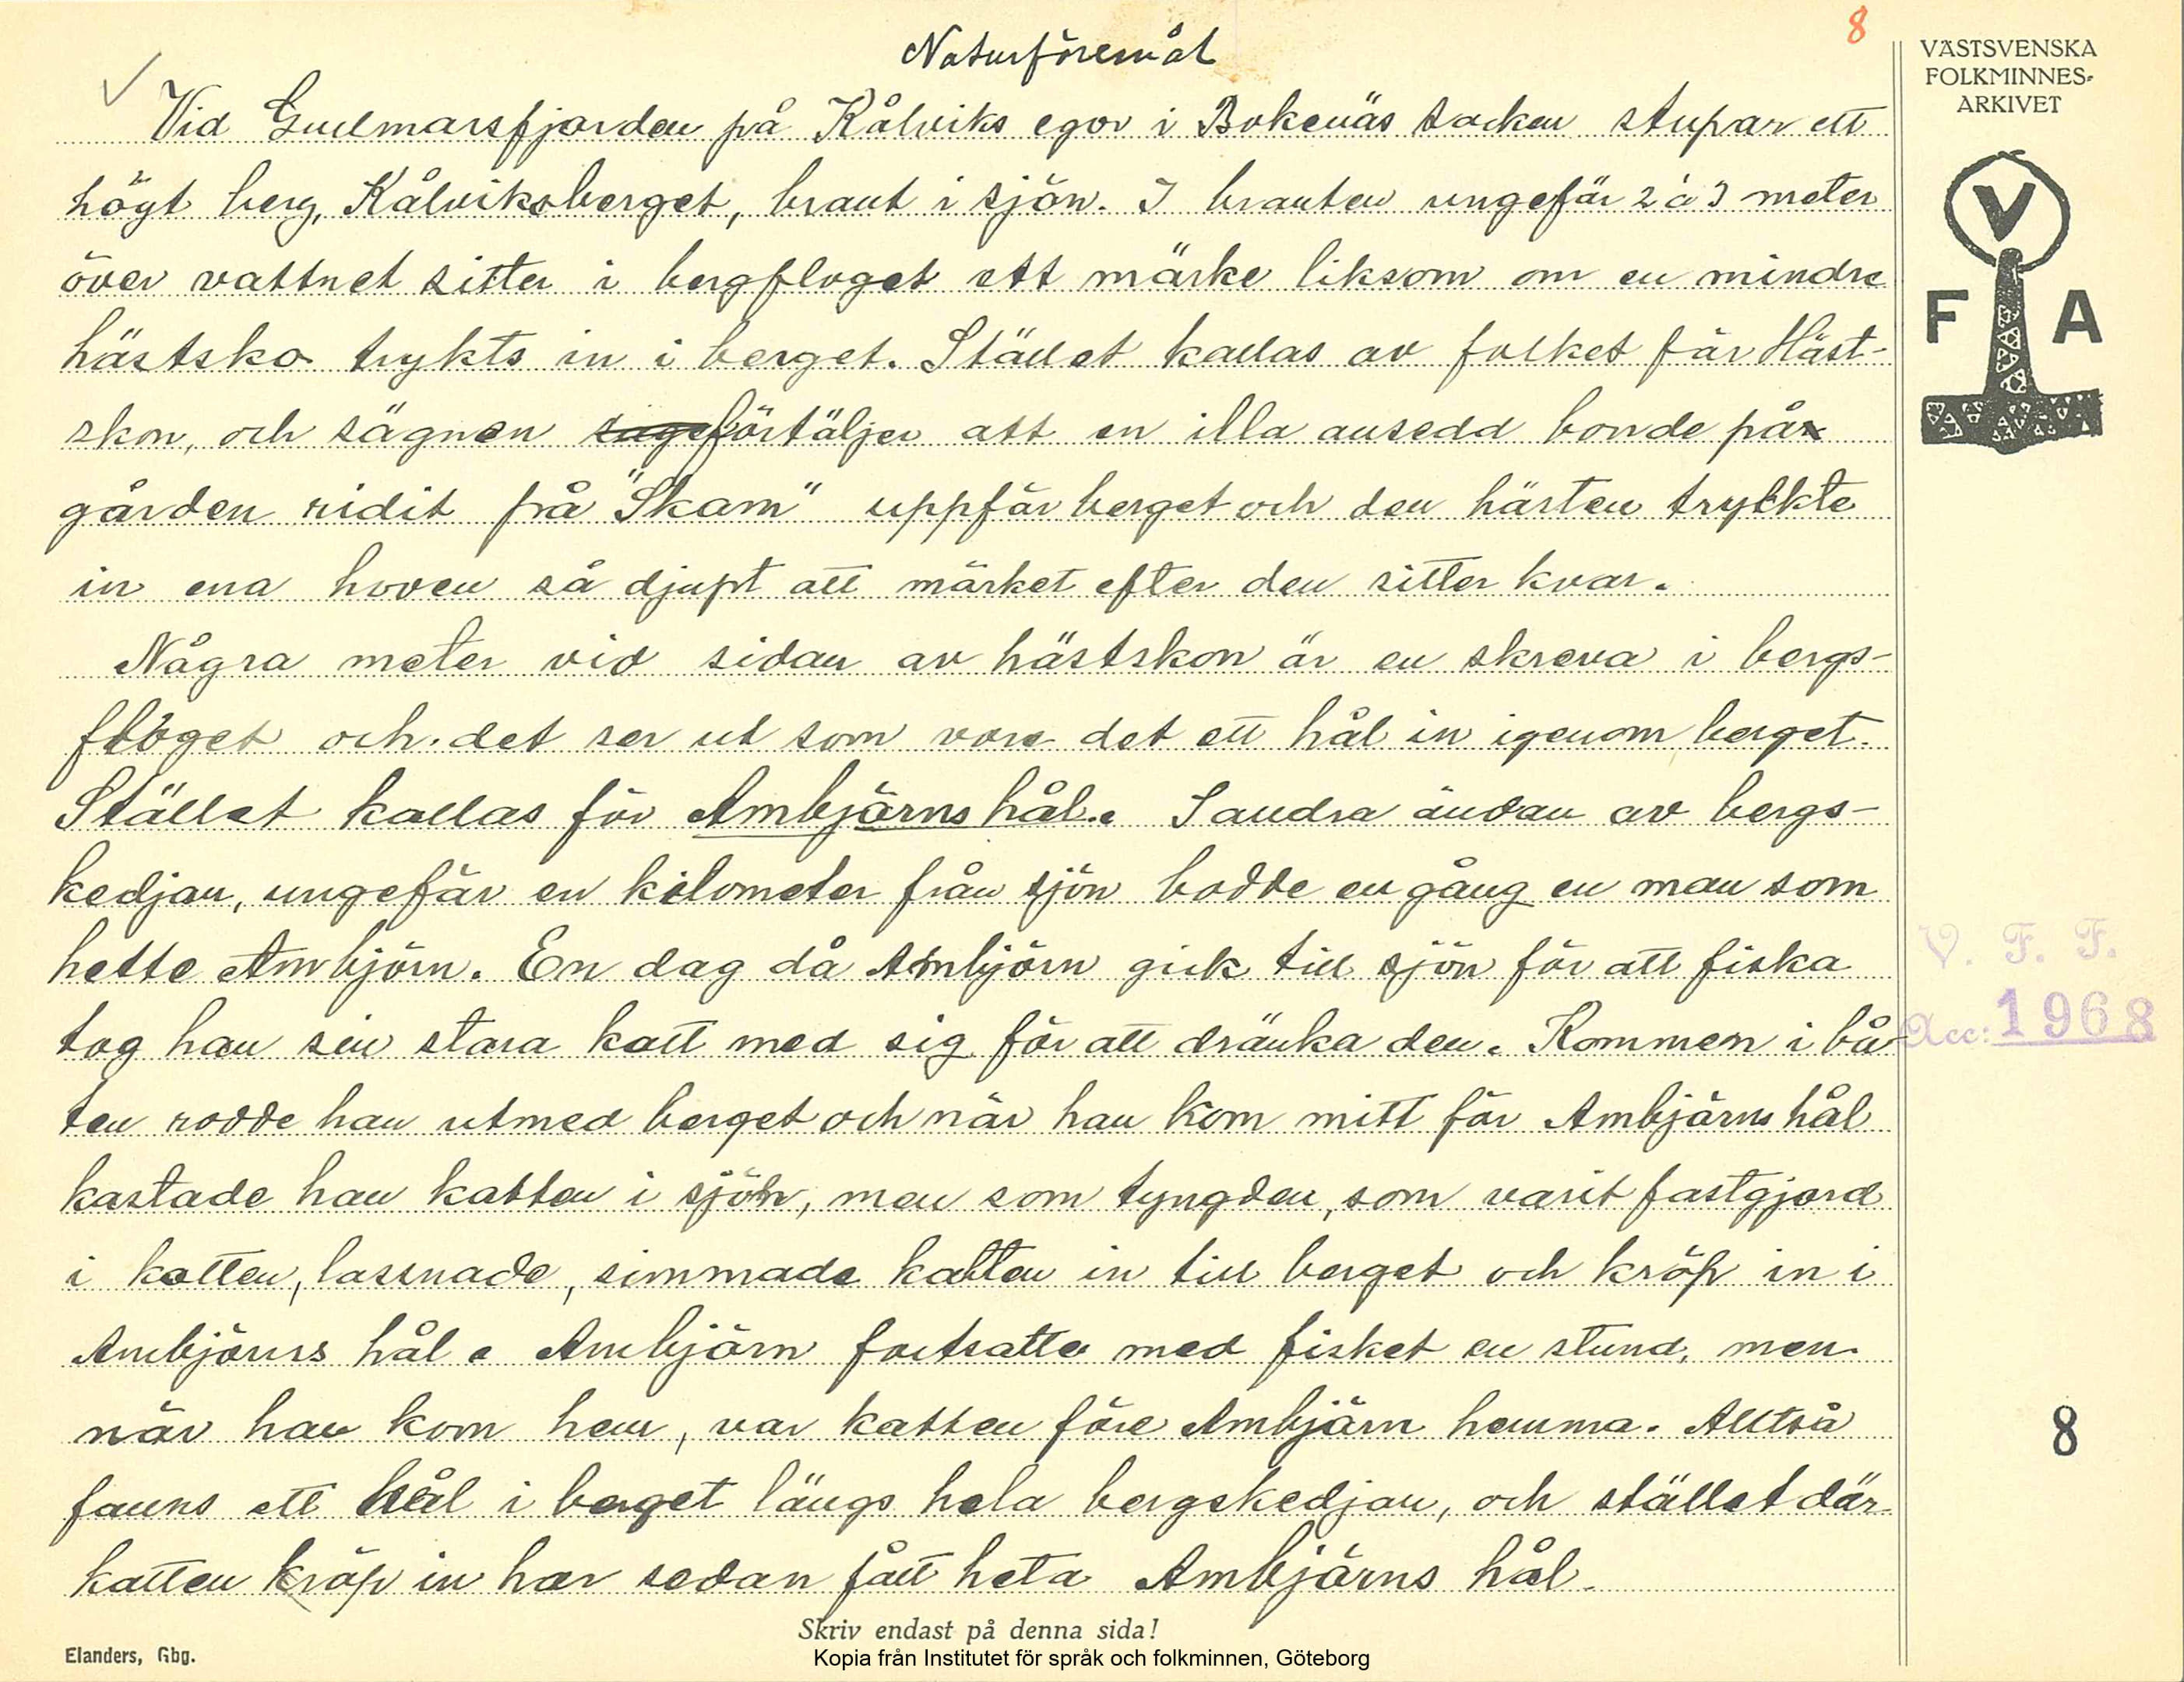 Naturföremål
8
Vid Gullmarsfjorden på Kålviks egor i Bokenäs socken stupar ett
högt berg, Kålviksberget, brant i sjön. I branten ungefär 2 à 3 meter
över vattnet sitter i bergfloget ett märke liksom om en mindre
hästsko trykts in i berget. Stället kallas av folket för Häst-
skon, och sägnen förtäljer att en illa ansedd bonde på
gården ridit på "Skam" uppför berget och den hästen tryckte
in ena hoven så djupt att märket efter den sitter kvar.
Några meter vid sidan av hästskon är en skreva i bergs-
floget och det ser ut som vore det ett hål in igenom berget.
Stället kallas för Ambjörns hål. I andra ändan av bergs-
kedjan, ungefär en kilometer från sjön bodde en gång en man som
hette Ambjörn. En dag då Ambjörn gick till sjön för att fiska
tog han sin stora katt med sig för att dränka den. Kommen i bå-
ten rodde han utmed berget och när han kom mitt för Ambjörns hål
kastade han katten i sjön, men som tyngden, som varit fastgjord
i katten, lossnade, simmade katten in till berget och kröp in i
Ambjörns hål. Ambjörn fortsatte med fisket en stund, men
när han kom hem, var katten före Ambjörn hemma. Alltså
fanns ett hål i berget längs hela bergskedjan, och stället där
katten kröp in har sedan fått heta Ambjörns hål.
Skriv endast på denna sida!
Elanders, Gbg.
Kopia från Institutet för språk och folkminnen, Göteborg
VÄSTSVENSKA
FOLKMINNES-
ARKIVET
V
F A
V. F. F.
Acc: 1968
8